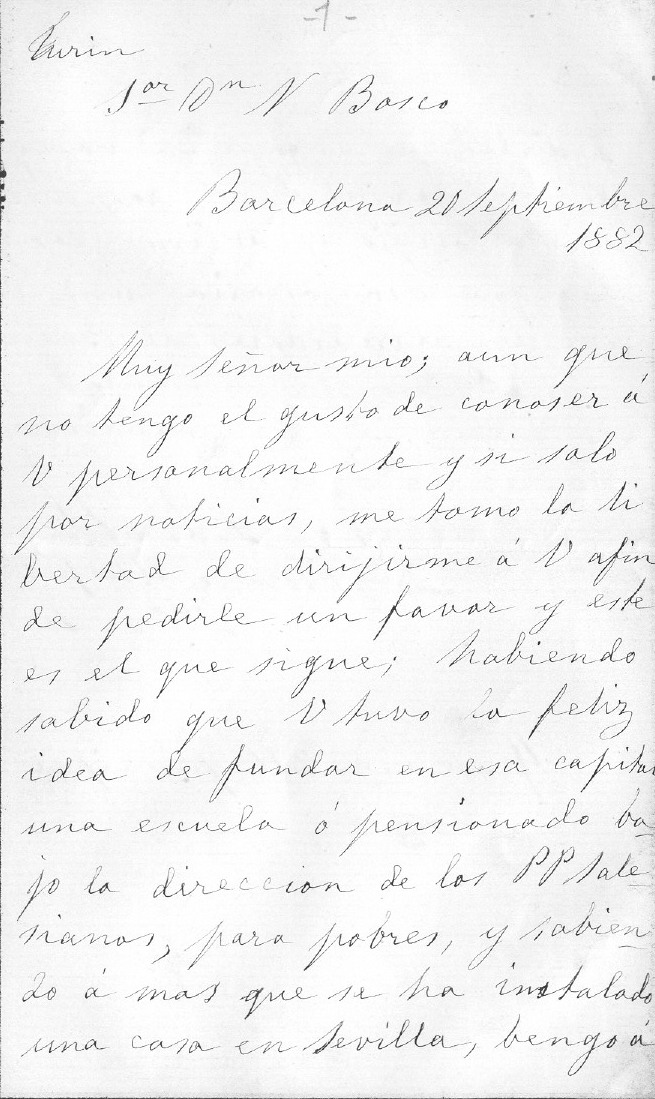 -1-
Turin
Sor Dn N Bosco
Barcelona 20 Septiembre
1882
Muy señor mio; aun que
no tengo el gusto de conoser á
V personalmente y si solo
por noticias, me tomo la li
bertad de dirijirme á V afin
de pedirle un favor y este
es el que sigue; habiendo
sabido que V tuvo la feliz
idea de fundar en esa capital
una escuela ó pensionado ba-
jo la direccion de los PP Sale-
sianos, para pobres, y sabien-
do á mas que se ha instalado
una casa en Sevilla, bengo á